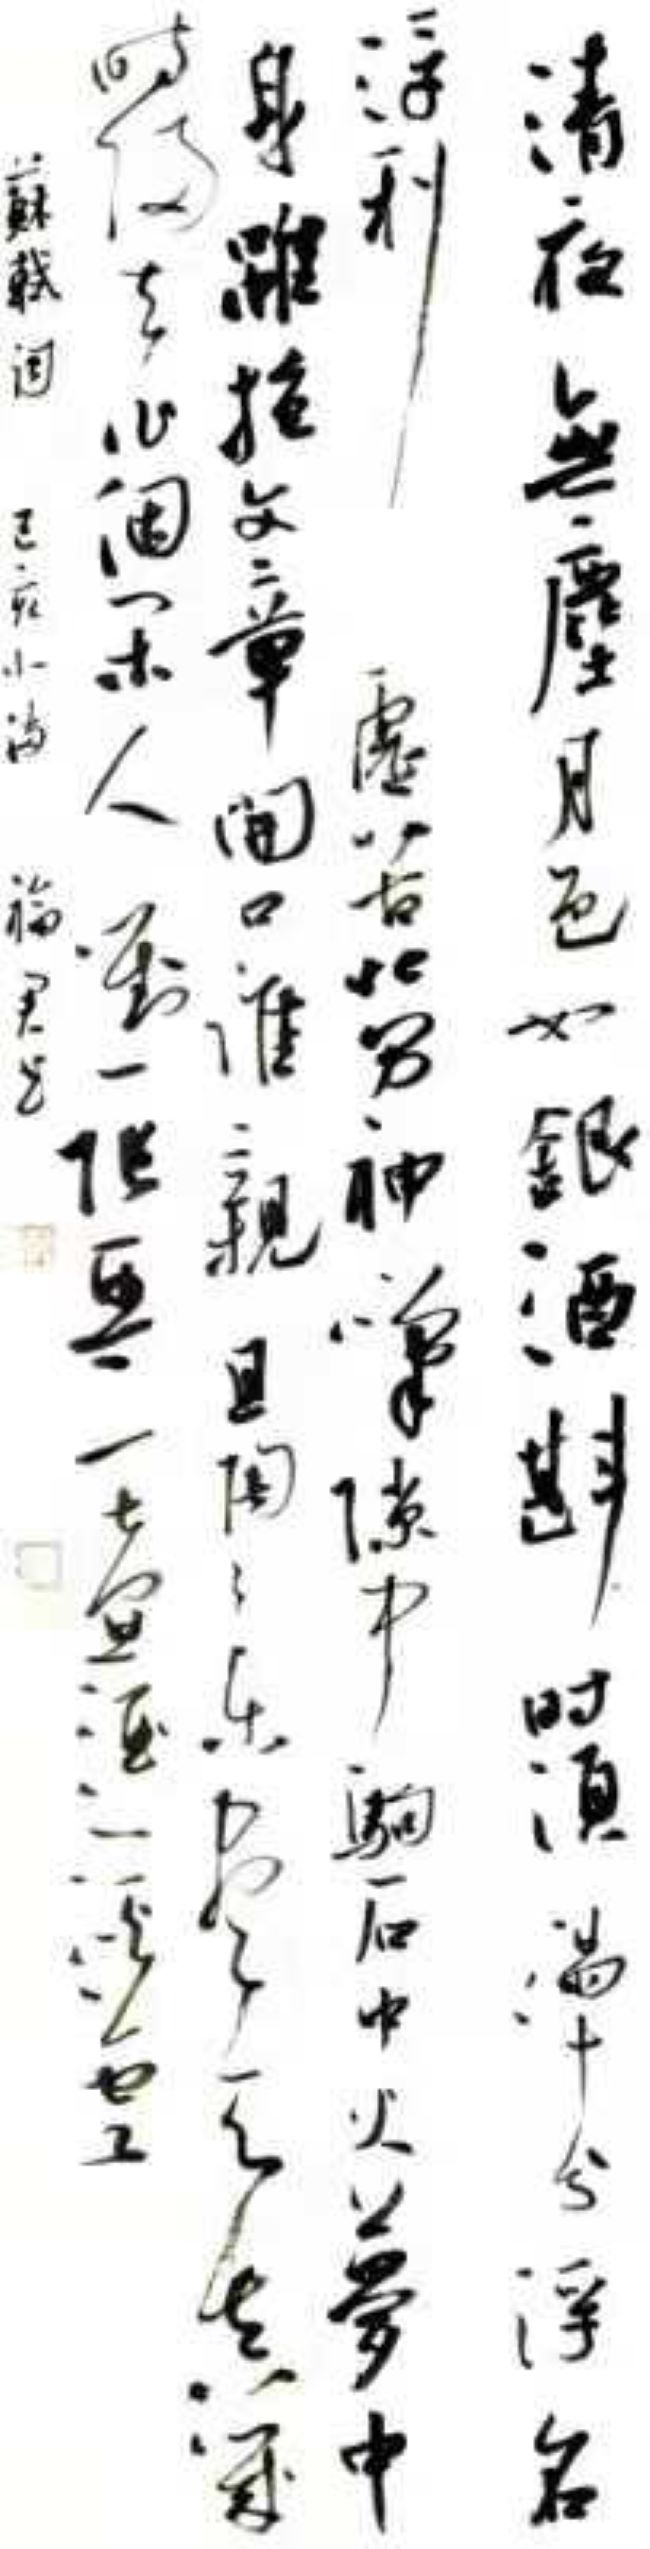 清夜無塵月色如銀酒斟時須滿十分浮名
浮利虛苦勞神嘆隙中駒石中火夢中
身雖抱文章開口誰親且陶〻樂盡天真幾
時歸去作個閑人對一張琴一壺酒一溪雲
蘇軾詞 己亥小滿 福君書